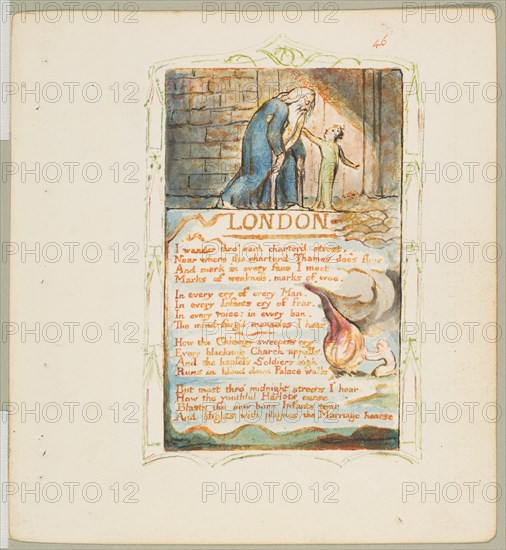 46
LONDON
I wander thro' each charter'd street,
Near where the charter'd Thames does flow
And mark in every face I meet
Marks of weakness, marks of woe.
In every cry of every Man,
In every Infants cry of fear,
In every voice; in every ban,
The mind-forg'd manacles I hear
How the Chimney-sweepers cry
Every blackning Church appalls,
And the hapless Soldiers sigh
Runs in blood down Palace walls
But most thro' midnight streets I hear
How the youthful Harlots curse
Blasts the new-born Infants tear
And blights with plagues the Marriage hearse
PHOTO 12